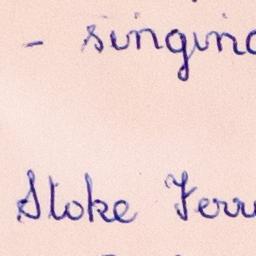 - singing
Stoke Ferr